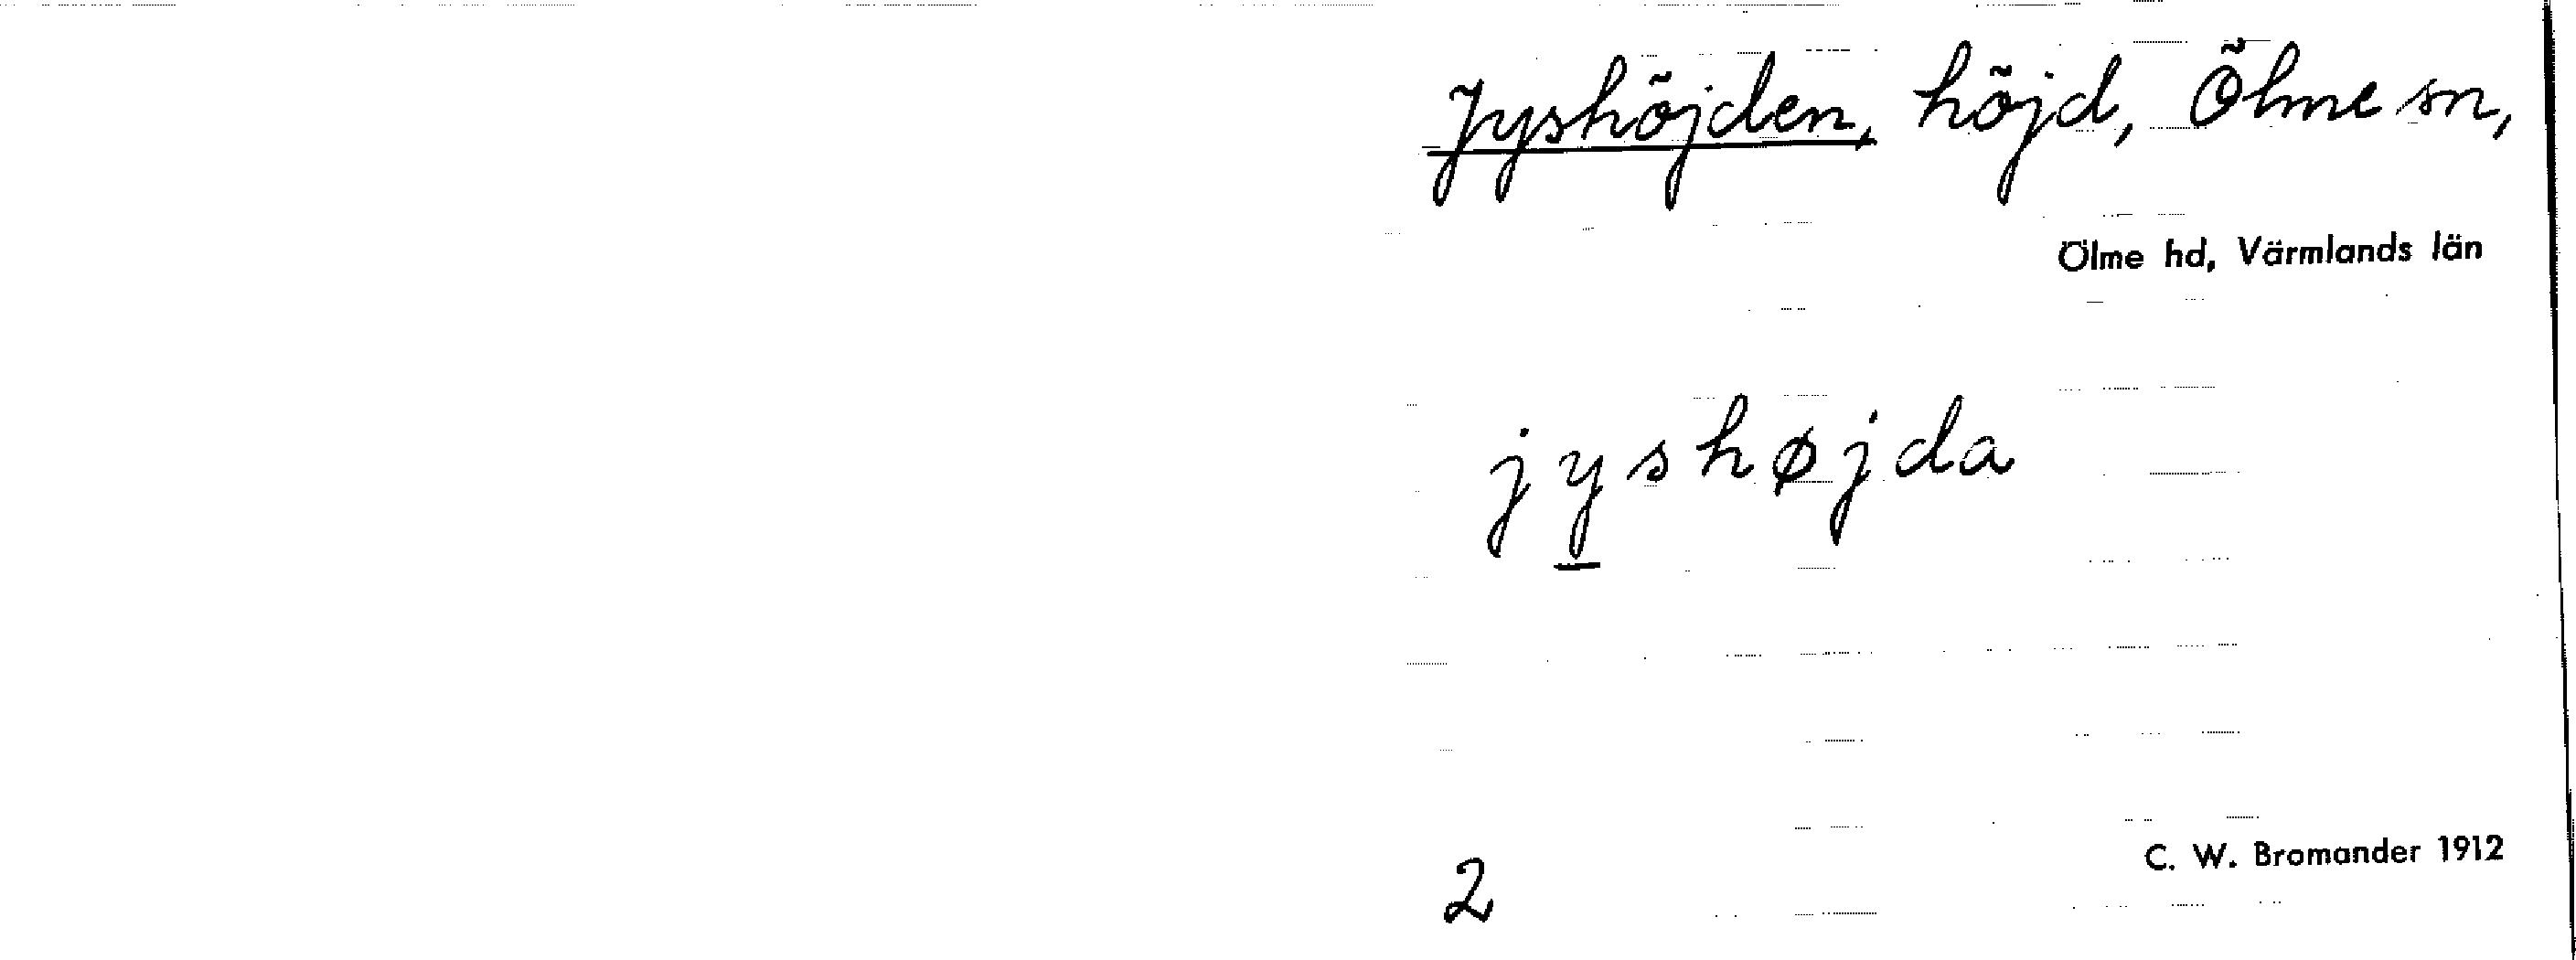 Jyshöjden, höjd, Ölme sn,
Ölme hd, Värmlands län
jyshøjda
C. W. Bromander 1912
2